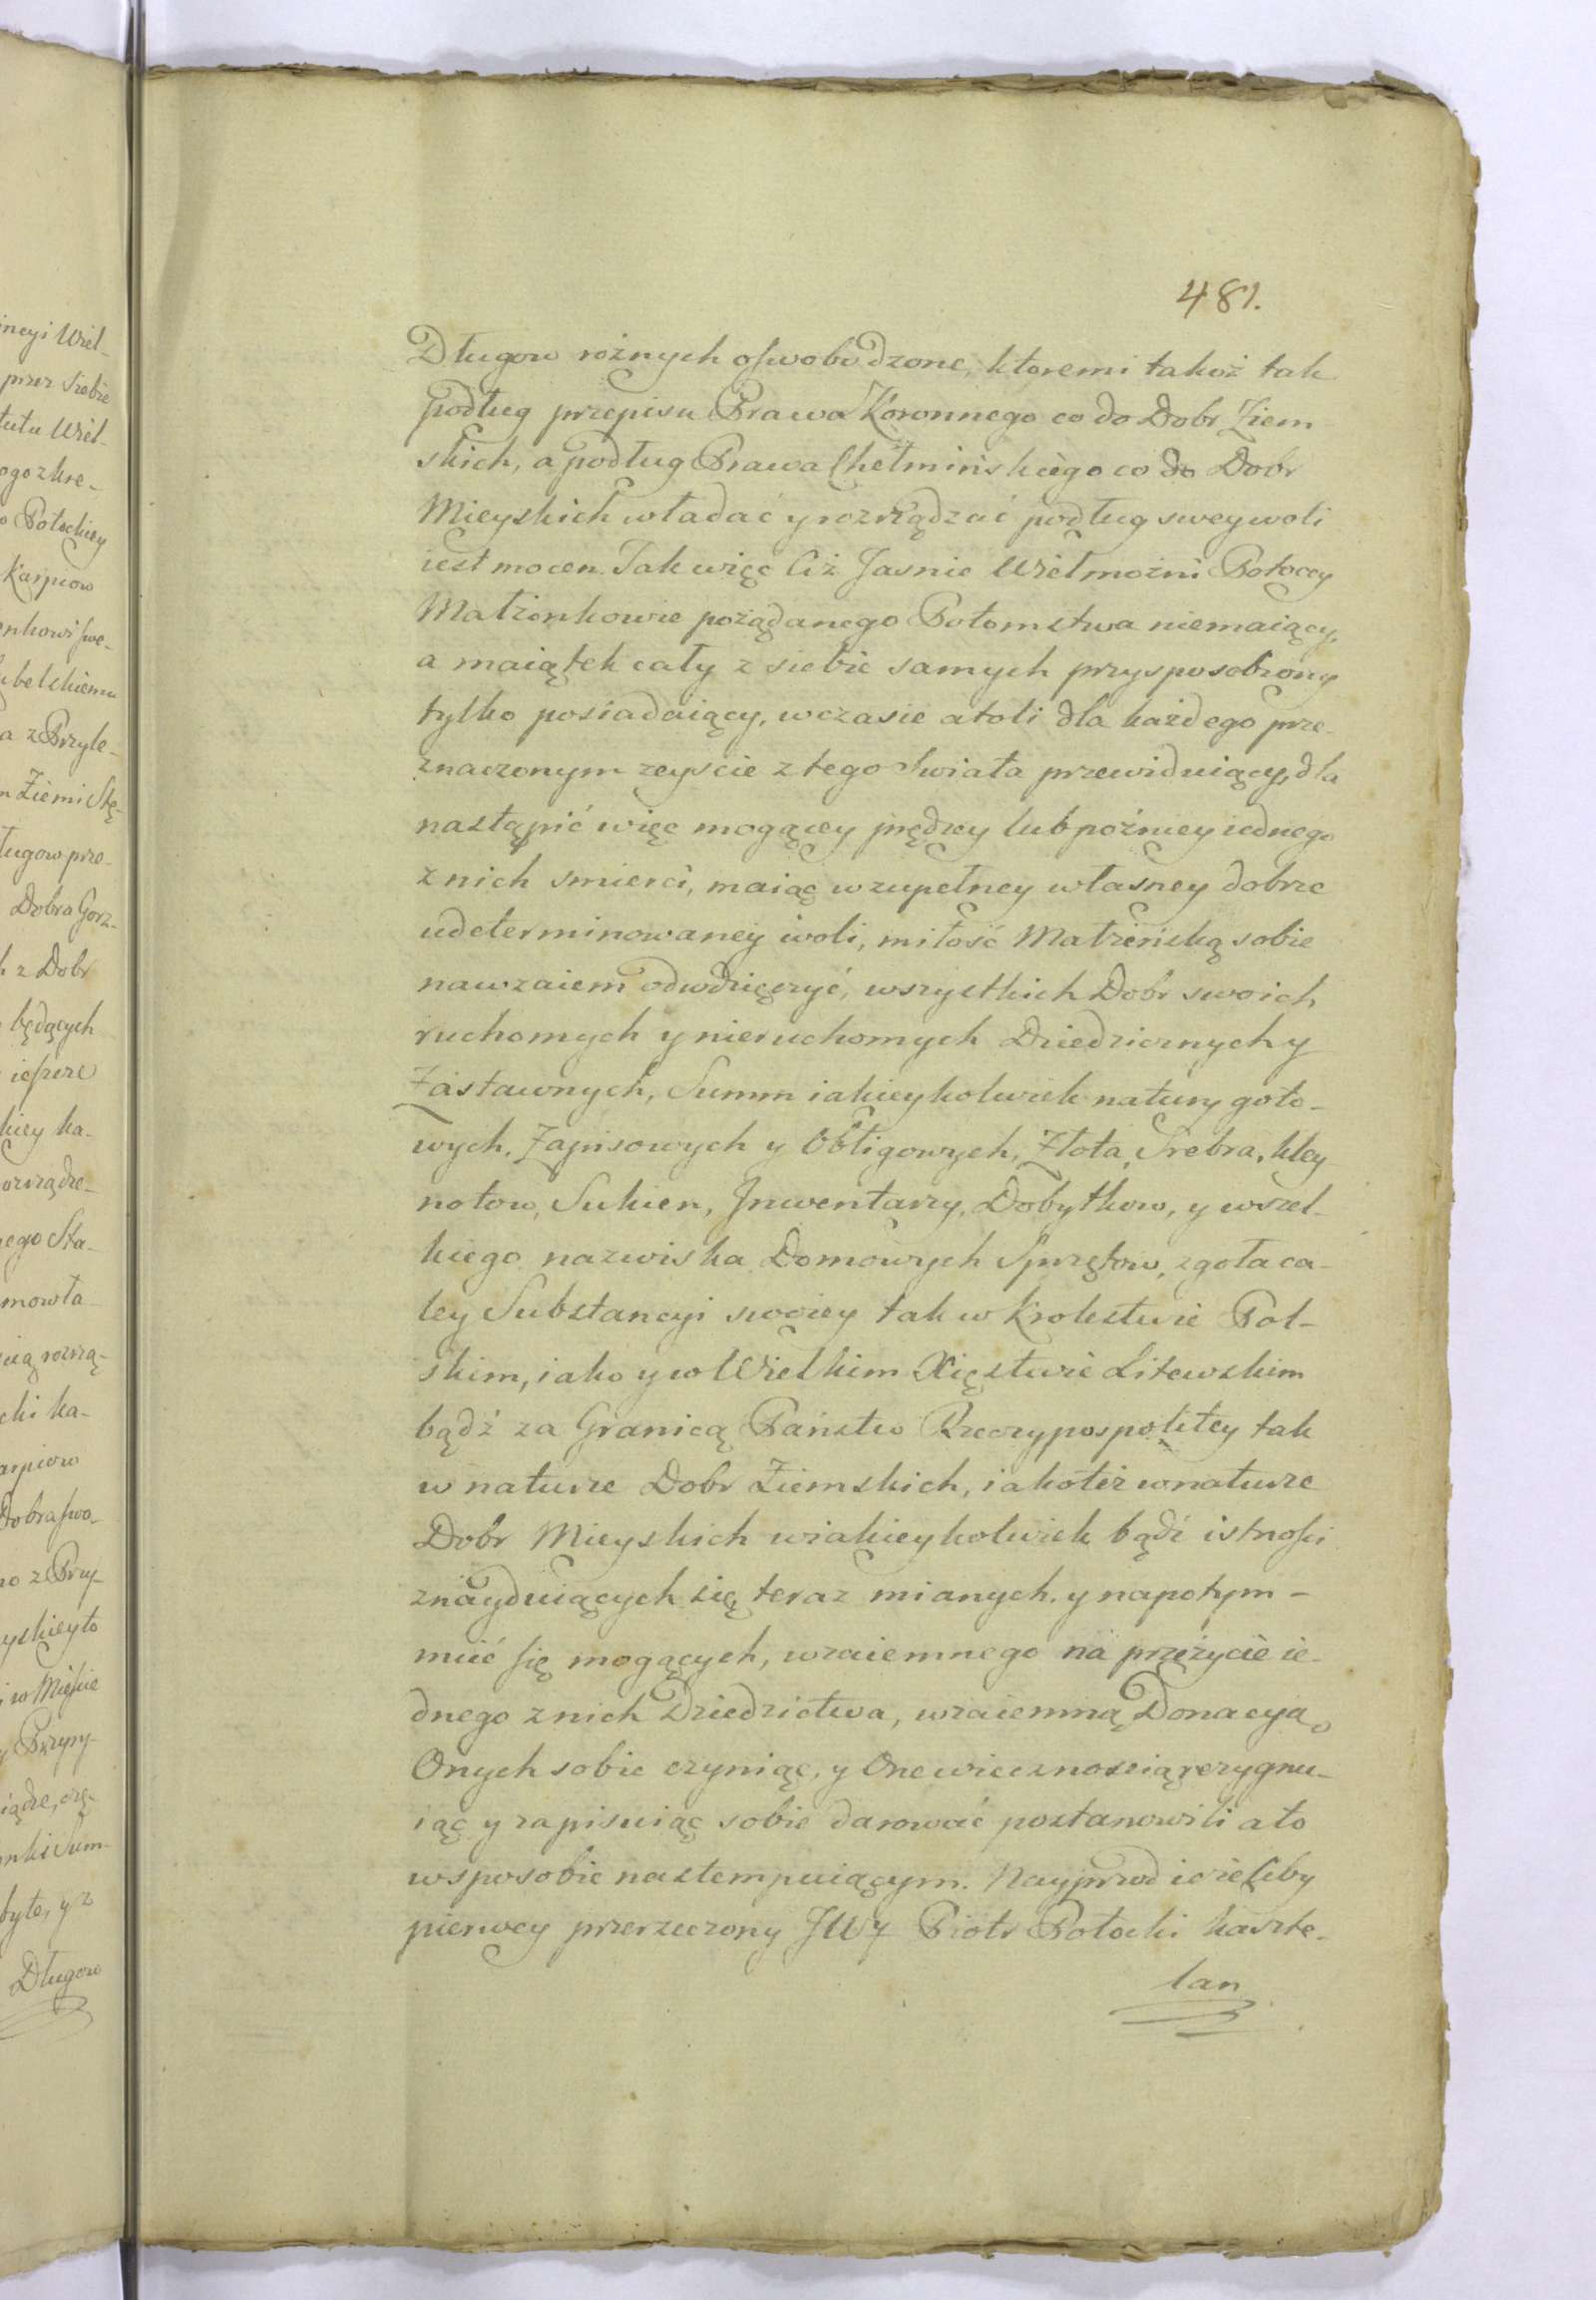 481.
Długow rożnych oswobodzone, ktoremi takoż tak
podług przepisu Prawa Koronnego co do Dobr Ziem
skich, a podług Prawa Chełmińskiego co do Dobr
Mieyskich władać y rozrządzać podług swey woli
iest mocen. Tak więc Ciż Jasnie Wielmożni Potoccy
Małżonkowie pożądanego Potomstwa niemaiący,
a maiątek cały z siebie samych przysposobiony
tylko posiadaiący, w czasie atoli dla każdego prze-
znaczonym zeyscie z tego swiata przewiduiący, dla
nastąpić więc mogącey prędzey lub poźniey iednego
z nich smierci, maiąc w zupełney własney dobrze
udeterminowaney woli, miłość Małżeńską sobie
nawzaiem odwdzięczyć, wszystkich Dobr swoich
ruchomych y nieruchomych Dziedzicznych y
Zastawnych, Summ iakieykolwiek natury goto-
wych, Zapisowych y Obligowych, Złota, Srebra, kley
notow, Sukien, Inwentarzy, Dobytkow, y wszel-
kiego nazwiska Domowych Sprzętow, zgoła ca-
ley Substancyi swoiey tak w Krolestwie Pol-
skim, iako y w Wielkim Xięstwie Litewskim
bądź za Granicą Państw Rzeczypospolitey tak
w naturze Dobr Ziemskich, iako też w naturze
Dobr Mieyskich w iakieykolwiek bądź istności
znayduiących się teraz mianych, y napotym-
mieć się mogących, wzaiemnego na przeżycie ie-
dnego z nich Dziedzictwa, wzaiemną Donacyą
Onych sobie czyniąc, y One wiecznoscią rezygnu-
iąc y zapisuiąc sobie darować postanowili a to
w sposobie nastempuiącym. Nayprzod ieżeliby
pierwey przerzeczony JWJ Piotr Potocki kaszte-
lan